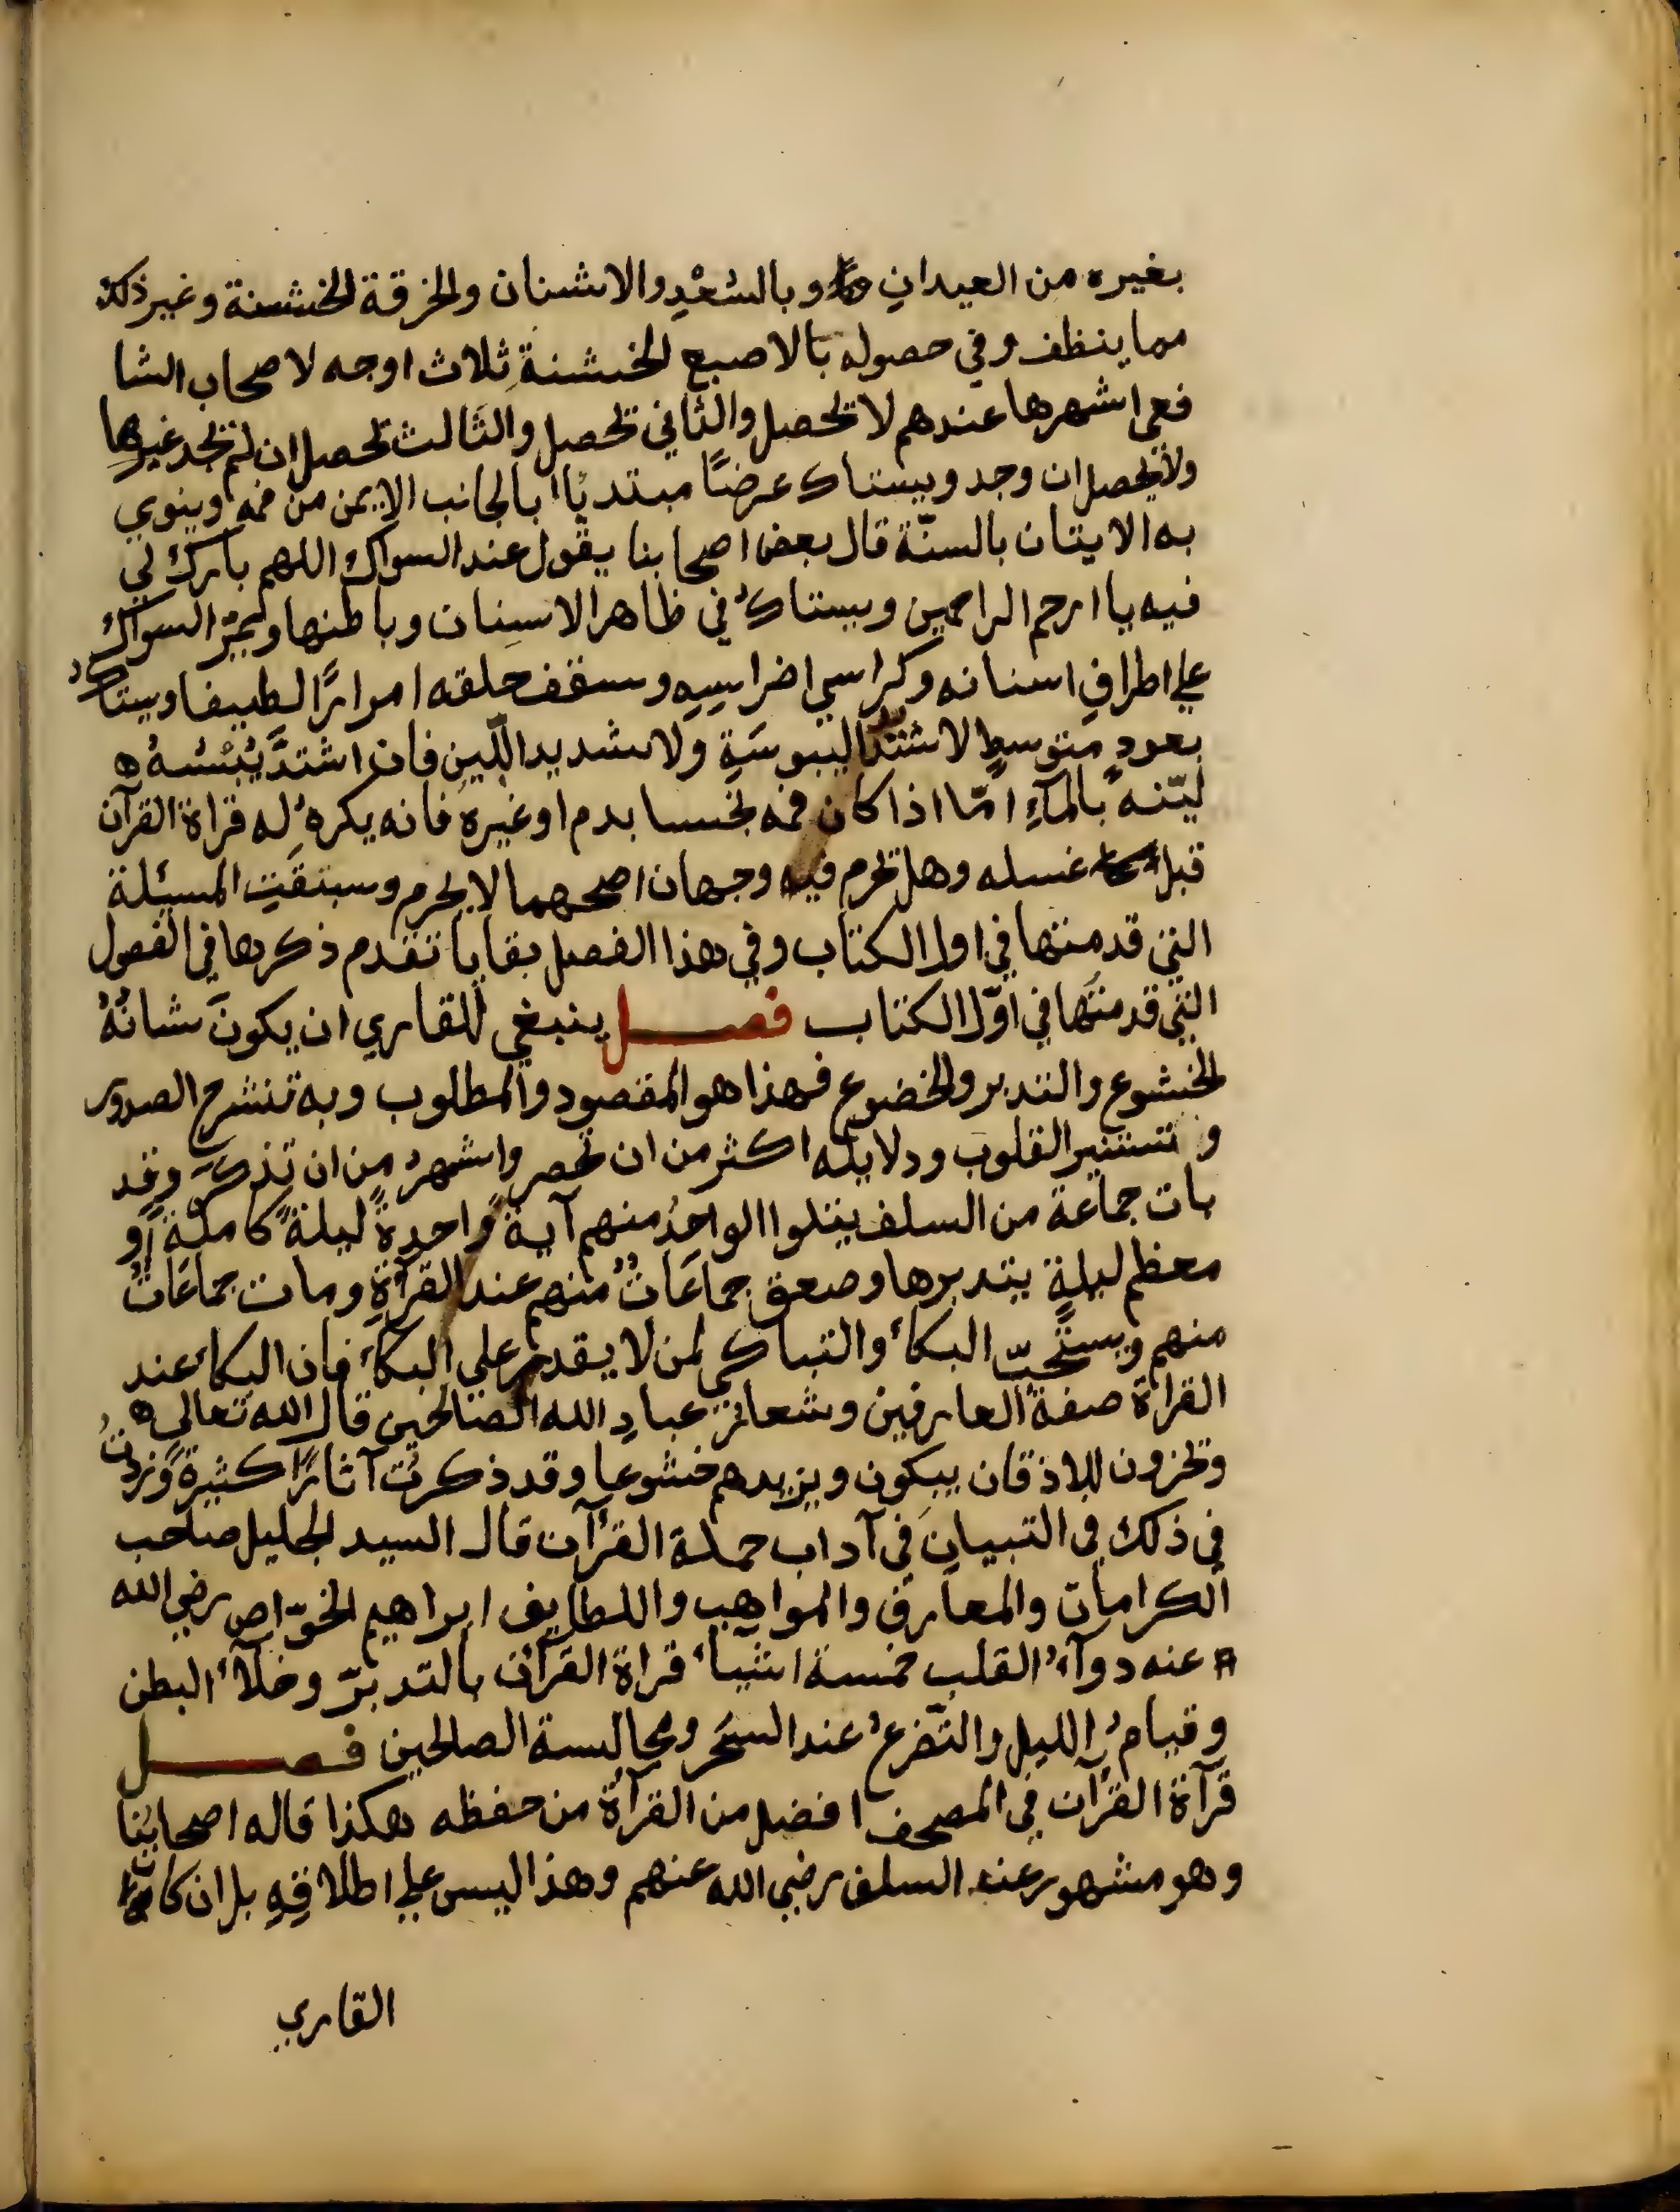 بغيره من العيدان وبالسُعْدِ والاشنان والخرقة الخشنة وغير ذلك
مما ينظف وفي حصوله بالاصبع الخشنةِ ثلاث اوجه لاصحاب الشا
فعي اشهرها عندهم لا تحصل والثاني تحصل والثالث تحصل ان لم تجد غيرها
ولا يحصل ان وجد ويستاك عرضًا مبتديًا بالجانب الايمن من فمه وينوي
به الايتان بالسنّة قال بعض اصحابنا يقول عند السواك اللهم بارك لي
فيه يا ارحم الراحمين ويستاكُ في ظاهر الاسنان وباطنها ويمرّ السواك
علي اطرافِ اسنانه وكراسي اضراسِهِ وسقف حلقه امرارًا لطيفا ويستاكُ
بعودٍ متوسطٍ لا شديد اليبوسَةِ ولا شديد اللّينِ فان اشتدَّ يُبْسُهُ ه
ليّنهُ بالمآءِ امّا اذا كان فمه نجسا بدم او غيره فانه يكرهُ له قراة القرآن
قبل غسله وهل تحرم فيه وجهان اصحهما لا يحرم وسبقَتِ المسئلة
التي قدمتها في اول الكتاب وفي هذا الفصل بقايا تقدم ذكرها في الفصول
التي قدمتُها في اوّل الكتاب فصل ينبغي للقاري ان يكونَ شانُهُ
الخشوع والتدبر والخضوع فهذا هو المقصود والمطلوب وبه تنشرح الصدور
وتستنير القلوب ودلايله اكثر من ان تحصر واشهرُ من ان تذكرَ وقد
بات جماعة من السلف يتلوا الواحدُ منهم آيةً واحدةً ليلةً كاملةً أو
معظم ليلةٍ يتدبرها وصعق جماعَاتٌ منهم عند القرآةِ ومات جماعَاتٌ
منهم ويستحبّ البكآء والتباكي لمن لا يقدر علي البكآء فان البكآء عند
القراة صفةُ العارفين وشعائر عبادِ الله الصالحين قال الله تعالي ه
وتخرون للاذقان يبكون ويزيدهم خشوعا وقد ذكرتُ آثارًا كثيرةً وردتُ
في ذلك في التبيانِ في آداب حملة القرآن قال السيد الجليل صاحب
الكرامات والمعارف والمواهب واللطايف ابراهيم الخوّاص رضي الله
عنه دوآءُ القلب خمسة اشيآء قراة القرآن بالتدبرّ وخلآءُ البطن
وقيامُ الليل والتّضرعُ عند السَحَر ومجالسة الصالحين فصل
قرآة القرآن في المصحف افضل من القرآة من حفظه هكذا قاله اصحابُنا
وهو مشهور عند السلف رضي الله عنهم وهذا ليس علي اطلاقِهِ بل ان كان
القاري